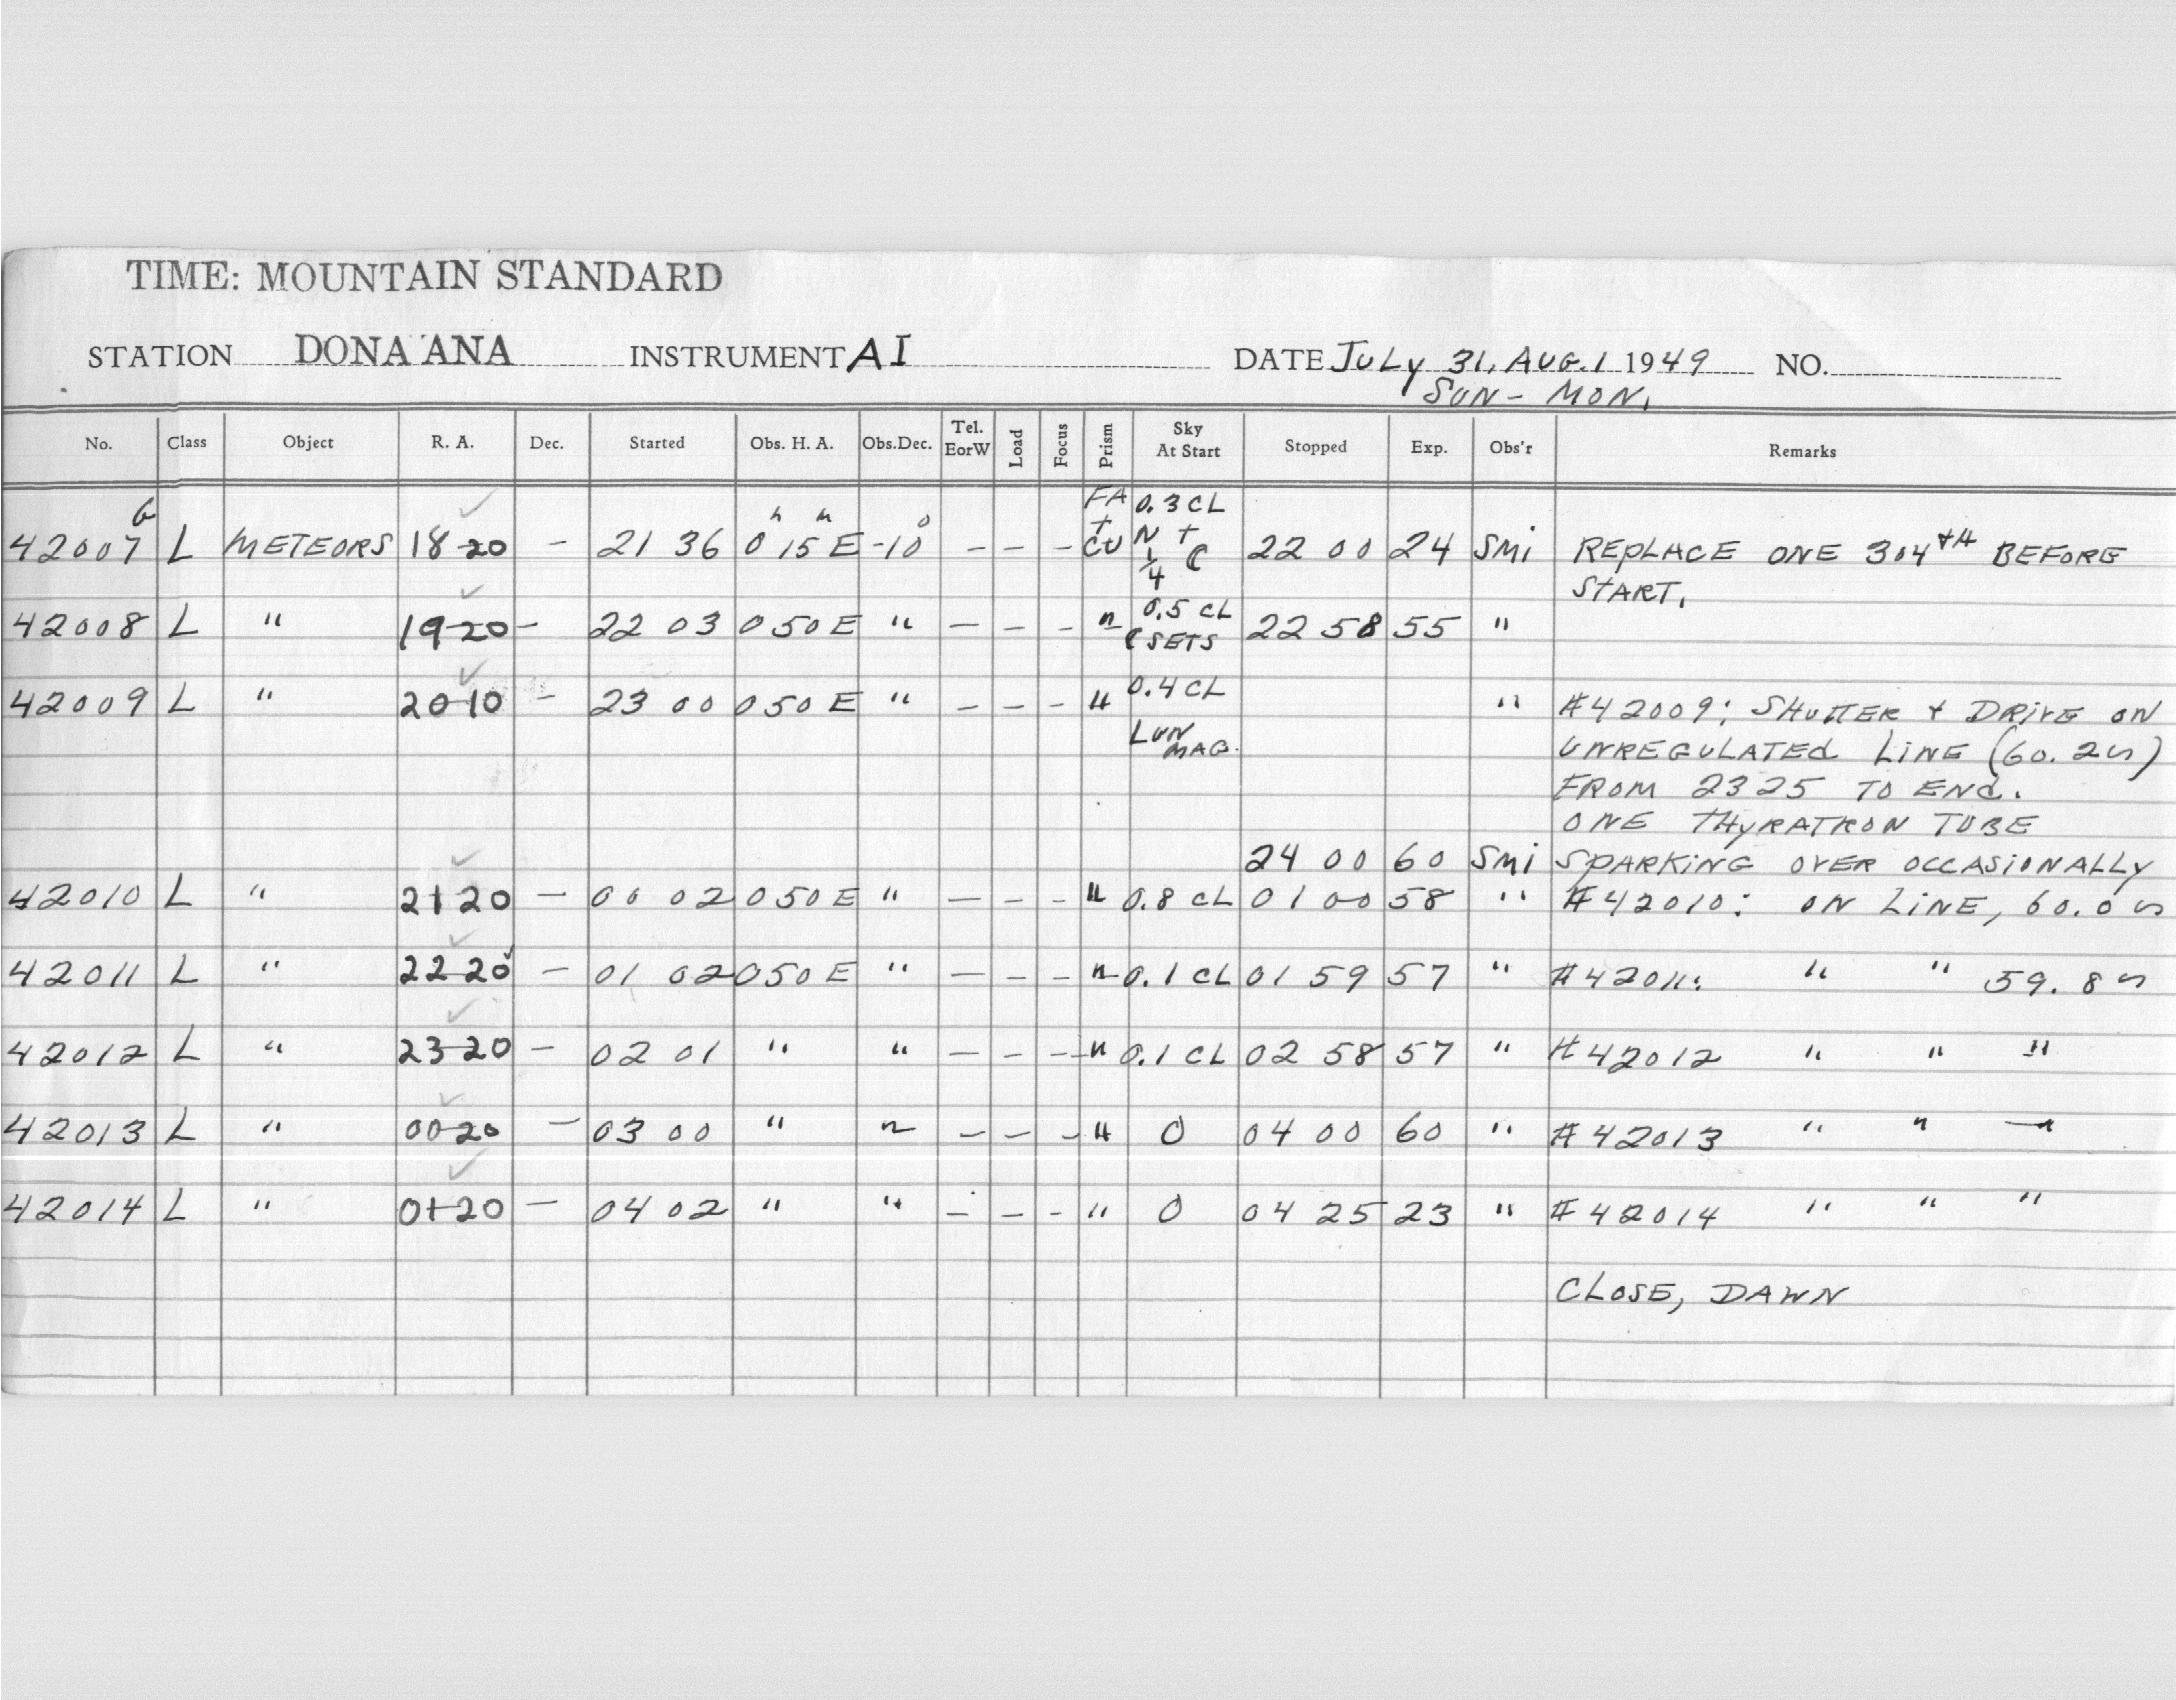 TIME: MOUNTAIN STANDARD
STATION DONA ANA INSTRUMENT AI DATE JULY 31, AUG. 1 1949 NO.
SUN - MON.
No. Class Object R. A. Dec. Started Obs. H. A. Obs. Dec. Tel. EorW Load Focus Prism Sky At Start Stopped Exp. Obs'r Remarks
42007 L METEORS 18-20 - 21 36 0h 15m E -10° - - - FA + CU 0.3 CL N + 1/4 ☾ 22 00 24 SMi REPLACE ONE 304TH BEFORE
START.
42008 L " 19-20 - 22 03 0 50 E " - - - " 0.5 CL ☾ SETS 22 58 55 "
42009 L " 20-10 - 23 00 0 50 E " - - - " 0.4 CL " #42009: SHUTTER + DRIVE ON
LUN MAG. UNREGULATED LINE (60.2~)
FROM 2325 TO END.
ONE THYRATRON TUBE
24 00 60 SMi SPARKING OVER OCCASIONALLY
42010 L " 21 20 - 00 02 0 50 E " - - - " 0.8 CL 01 00 58 " #42010: ON LINE, 60.0~
42011 L " 22-20 - 01 02 0 50 E " - - - " 0.1 CL 01 59 57 " #42011: " " 59.8~
42012 L " 23-20 - 02 01 " " - - - " 0.1 CL 02 58 57 " #42012 " " "
42013 L " 00-20 - 03 00 " " - - - " 0 04 00 60 " #42013 " " "
42014 L " 01-20 - 04 02 " " - - - " 0 04 25 23 " #42014 " " "
CLOSE, DAWN